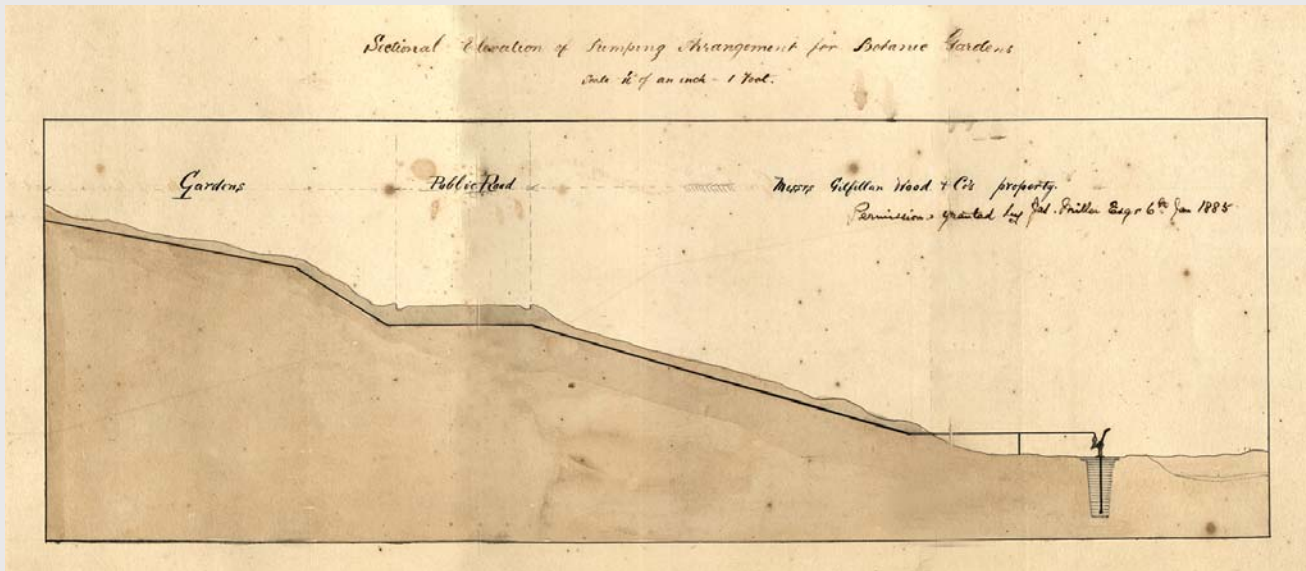 Sectional Elevation of Pumping Arrangement for Botanic Gardens
Scale of an inch = 1 Foot.
Gardens
Public Road
Messrs Gilfillan Wood & Co's property.
Permission granted by Jas. Miller Esqr 6th Jan 1885